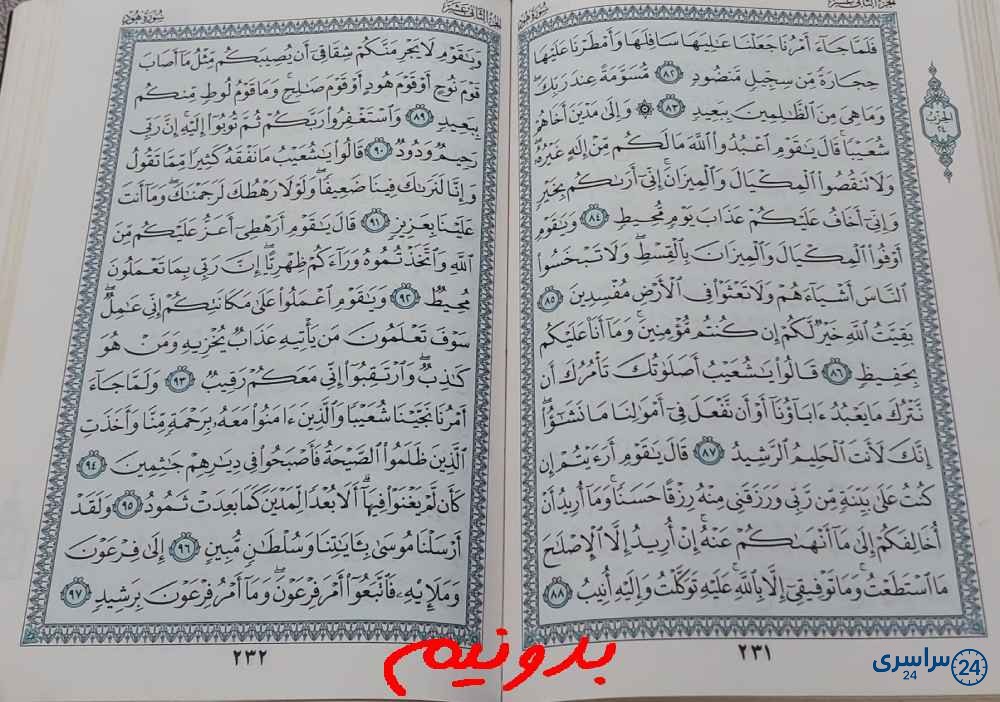 الجزء الثاني عشر
سُورَةُ هُود
فَلَمَّا جَآءَ أَمْرُنَا جَعَلْنَا عَـٰلِيَهَا سَافِلَهَا وَأَمْطَرْنَا عَلَيْهَا
حِجَارَةً مِّن سِجِّيلٍ مَّنضُودٍ ٨٢ مُّسَوَّمَةً عِندَ رَبِّكَۖ
وَمَا هِىَ مِنَ ٱلظَّـٰلِمِينَ بِبَعِيدٍ ٨٣ ۞ وَإِلَىٰ مَدْيَنَ أَخَاهُمْ
شُعَيْبًاۚ قَالَ يَـٰقَوْمِ ٱعْبُدُوا۟ ٱللَّهَ مَا لَكُم مِّنْ إِلَـٰهٍ غَيْرُهُۥۖ
وَلَا تَنقُصُوا۟ ٱلْمِكْيَالَ وَٱلْمِيزَانَۚ إِنِّىٓ أَرَىٰكُم بِخَيْرٍ
وَإِنِّىٓ أَخَافُ عَلَيْكُمْ عَذَابَ يَوْمٍ مُّحِيطٍ ٨٤ وَيَـٰقَوْمِ
أَوْفُوا۟ ٱلْمِكْيَالَ وَٱلْمِيزَانَ بِٱلْقِسْطِۖ وَلَا تَبْخَسُوا۟
ٱلنَّاسَ أَشْيَآءَهُمْ وَلَا تَعْثَوْا۟ فِى ٱلْأَرْضِ مُفْسِدِينَ ٨٥
بَقِيَّتُ ٱللَّهِ خَيْرٌ لَّكُمْ إِن كُنتُم مُّؤْمِنِينَۚ وَمَآ أَنَا۠ عَلَيْكُم
بِحَفِيظٍ ٨٦ قَالُوا۟ يَـٰشُعَيْبُ أَصَلَوٰتُكَ تَأْمُرُكَ أَن
نَّتْرُكَ مَا يَعْبُدُ ءَابَآؤُنَآ أَوْ أَن نَّفْعَلَ فِىٓ أَمْوَٰلِنَا مَا نَشَـٰٓؤُا۟ۖ
إِنَّكَ لَأَنتَ ٱلْحَلِيمُ ٱلرَّشِيدُ ٨٧ قَالَ يَـٰقَوْمِ أَرَءَيْتُمْ إِن
كُنتُ عَلَىٰ بَيِّنَةٍ مِّن رَّبِّى وَرَزَقَنِى مِنْهُ رِزْقًا حَسَنًاۚ وَمَآ أُرِيدُ أَنْ
أُخَالِفَكُمْ إِلَىٰ مَآ أَنْهَىٰكُمْ عَنْهُۚ إِنْ أُرِيدُ إِلَّا ٱلْإِصْلَـٰحَ
مَا ٱسْتَطَعْتُۚ وَمَا تَوْفِيقِىٓ إِلَّا بِٱللَّهِۚ عَلَيْهِ تَوَكَّلْتُ وَإِلَيْهِ أُنِيبُ ٨٨
٢٣١
الحزب
٢٤
الجزء الثاني عشر
سُورَةُ هُود
وَيَـٰقَوْمِ لَا يَجْرِمَنَّكُمْ شِقَاقِىٓ أَن يُصِيبَكُم مِّثْلُ مَآ أَصَابَ
قَوْمَ نُوحٍ أَوْ قَوْمَ هُودٍ أَوْ قَوْمَ صَـٰلِحٍۚ وَمَا قَوْمُ لُوطٍ مِّنكُم
بِبَعِيدٍ ٨٩ وَٱسْتَغْفِرُوا۟ رَبَّكُمْ ثُمَّ تُوبُوٓا۟ إِلَيْهِۚ إِنَّ رَبِّى
رَحِيمٌ وَدُودٌ ٩٠ قَالُوا۟ يَـٰشُعَيْبُ مَا نَفْقَهُ كَثِيرًا مِّمَّا تَقُولُ
وَإِنَّا لَنَرَىٰكَ فِينَا ضَعِيفًاۖ وَلَوْلَا رَهْطُكَ لَرَجَمْنَـٰكَۖ وَمَآ أَنتَ
عَلَيْنَا بِعَزِيزٍ ٩١ قَالَ يَـٰقَوْمِ أَرَهْطِىٓ أَعَزُّ عَلَيْكُم مِّنَ
ٱللَّهِ وَٱتَّخَذْتُمُوهُ وَرَآءَكُمْ ظِهْرِيًّاۖ إِنَّ رَبِّى بِمَا تَعْمَلُونَ
مُحِيطٌ ٩٢ وَيَـٰقَوْمِ ٱعْمَلُوا۟ عَلَىٰ مَكَانَتِكُمْ إِنِّى عَـٰمِلٌۖ
سَوْفَ تَعْلَمُونَ مَن يَأْتِيهِ عَذَابٌ يُخْزِيهِ وَمَنْ هُوَ
كَـٰذِبٌۖ وَٱرْتَقِبُوٓا۟ إِنِّى مَعَكُمْ رَقِيبٌ ٩٣ وَلَمَّا جَآءَ
أَمْرُنَا نَجَّيْنَا شُعَيْبًا وَٱلَّذِينَ ءَامَنُوا۟ مَعَهُۥ بِرَحْمَةٍ مِّنَّا وَأَخَذَتِ
ٱلَّذِينَ ظَلَمُوا۟ ٱلصَّيْحَةُ فَأَصْبَحُوا۟ فِى دِيَـٰرِهِمْ جَـٰثِمِينَ ٩٤
كَأَن لَّمْ يَغْنَوْا۟ فِيهَآۗ أَلَا بُعْدًا لِّمَدْيَنَ كَمَا بَعِدَتْ ثَمُودُ ٩٥ وَلَقَدْ
أَرْسَلْنَا مُوسَىٰ بِـَٔايَـٰتِنَا وَسُلْطَـٰنٍ مُّبِينٍ ٩٦ إِلَىٰ فِرْعَوْنَ
وَمَلَإِي۟هِۦ فَٱتَّبَعُوٓا۟ أَمْرَ فِرْعَوْنَۖ وَمَآ أَمْرُ فِرْعَوْنَ بِرَشِيدٍ ٩٧
٢٣٢
بدونیم
سراسری
24
24